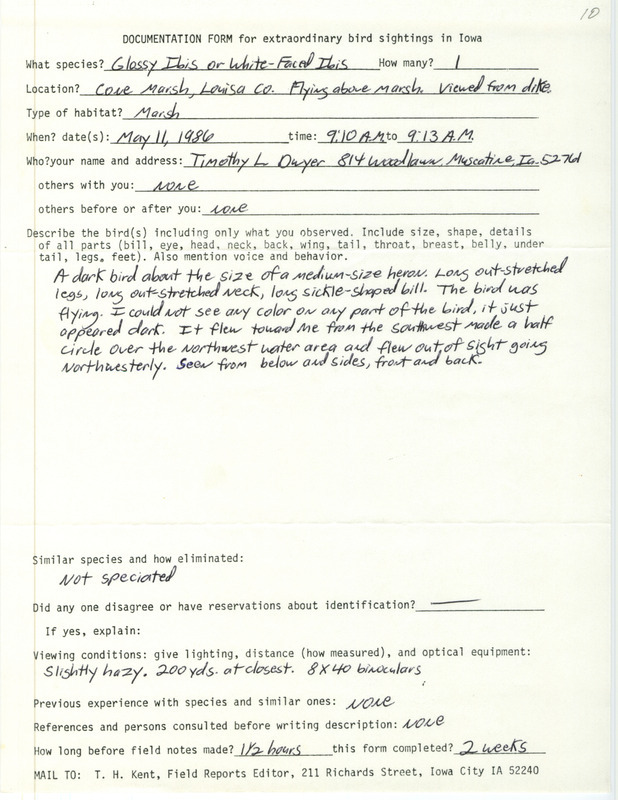 10
DOCUMENTATION FORM for extraordinary bird sightings in Iowa
What species? Glossy Ibis or White-Faced Ibis How many? 1
Location? Cone Marsh, Louisa Co. Flying above marsh. Viewed from dike.
Type of habitat? Marsh
When? date(s): May 11, 1986 time: 9:10 A.M. to 9:13 A.M.
Who? your name and address: Timothy L Dwyer 814 Woodlawn, Muscatine, Ia. 52761
others with you: none
others before or after you: none
Describe the bird(s) including only what you observed. Include size, shape, details
of all parts (bill, eye, head, neck, back, wing, tail, throat, breast, belly, under
tail, legs, feet). Also mention voice and behavior.
A dark bird about the size of a medium-size heron. Long out-stretched
legs, long out-stretched neck, long sickle-shaped bill. The bird was
flying. I could not see any color on any part of the bird, it just
appeared dark. It flew toward me from the southwest made a half
circle over the northwest water area and flew out of sight going
Northwesterly. Seen from below and sides, front and back.
Similar species and how eliminated:
Not speciated
Did any one disagree or have reservations about identification? —
If yes, explain:
Viewing conditions: give lighting, distance (how measured), and optical equipment:
Slightly hazy. 200 yds. at closest. 8X40 binoculars
Previous experience with species and similar ones: none
References and persons consulted before writing description: none
How long before field notes made? 1 1/2 hours this form completed? 2 weeks
MAIL TO: T. H. Kent, Field Reports Editor, 211 Richards Street, Iowa City IA 52240